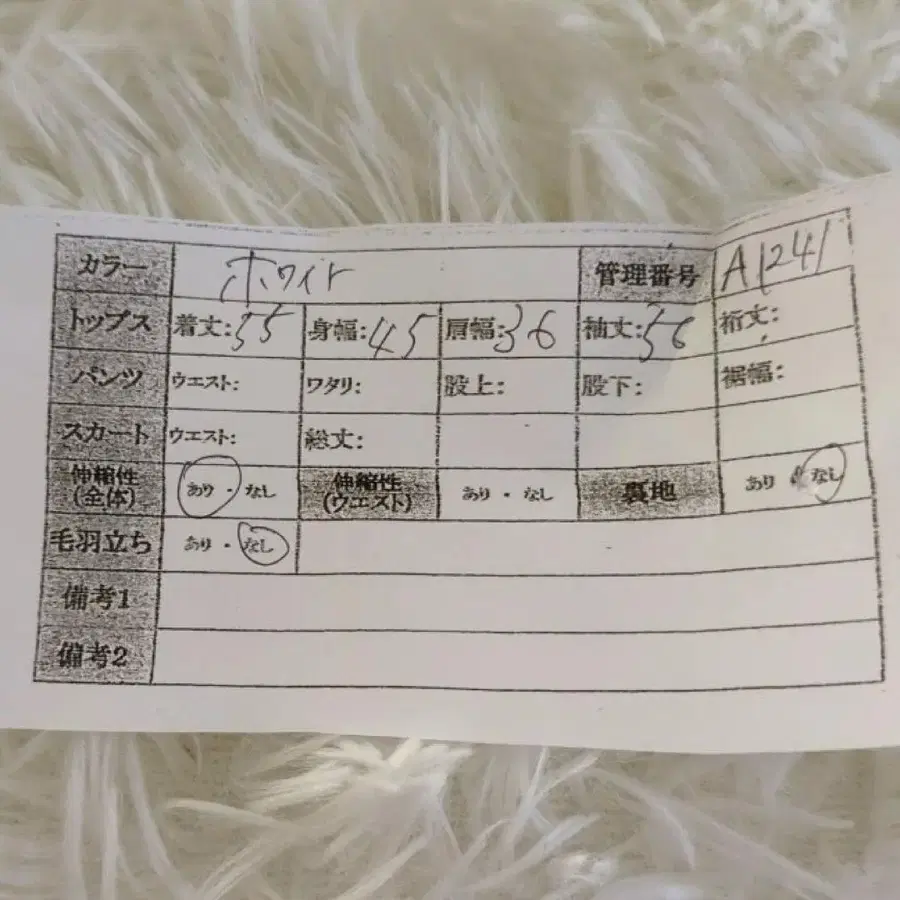 カラー ホワイト 管理番号 A1241
トップス 着丈:55 身幅:45 肩幅:36 袖丈:56 裄丈:
パンツ ウエスト: ワタリ: 股上: 股下: 裾幅:
スカート ウエスト: 総丈:
伸縮性
(全体) あり・なし 伸縮性
(ウエスト) あり・なし 裏地 あり・なし
毛羽立ち あり・なし
備考1
備考2